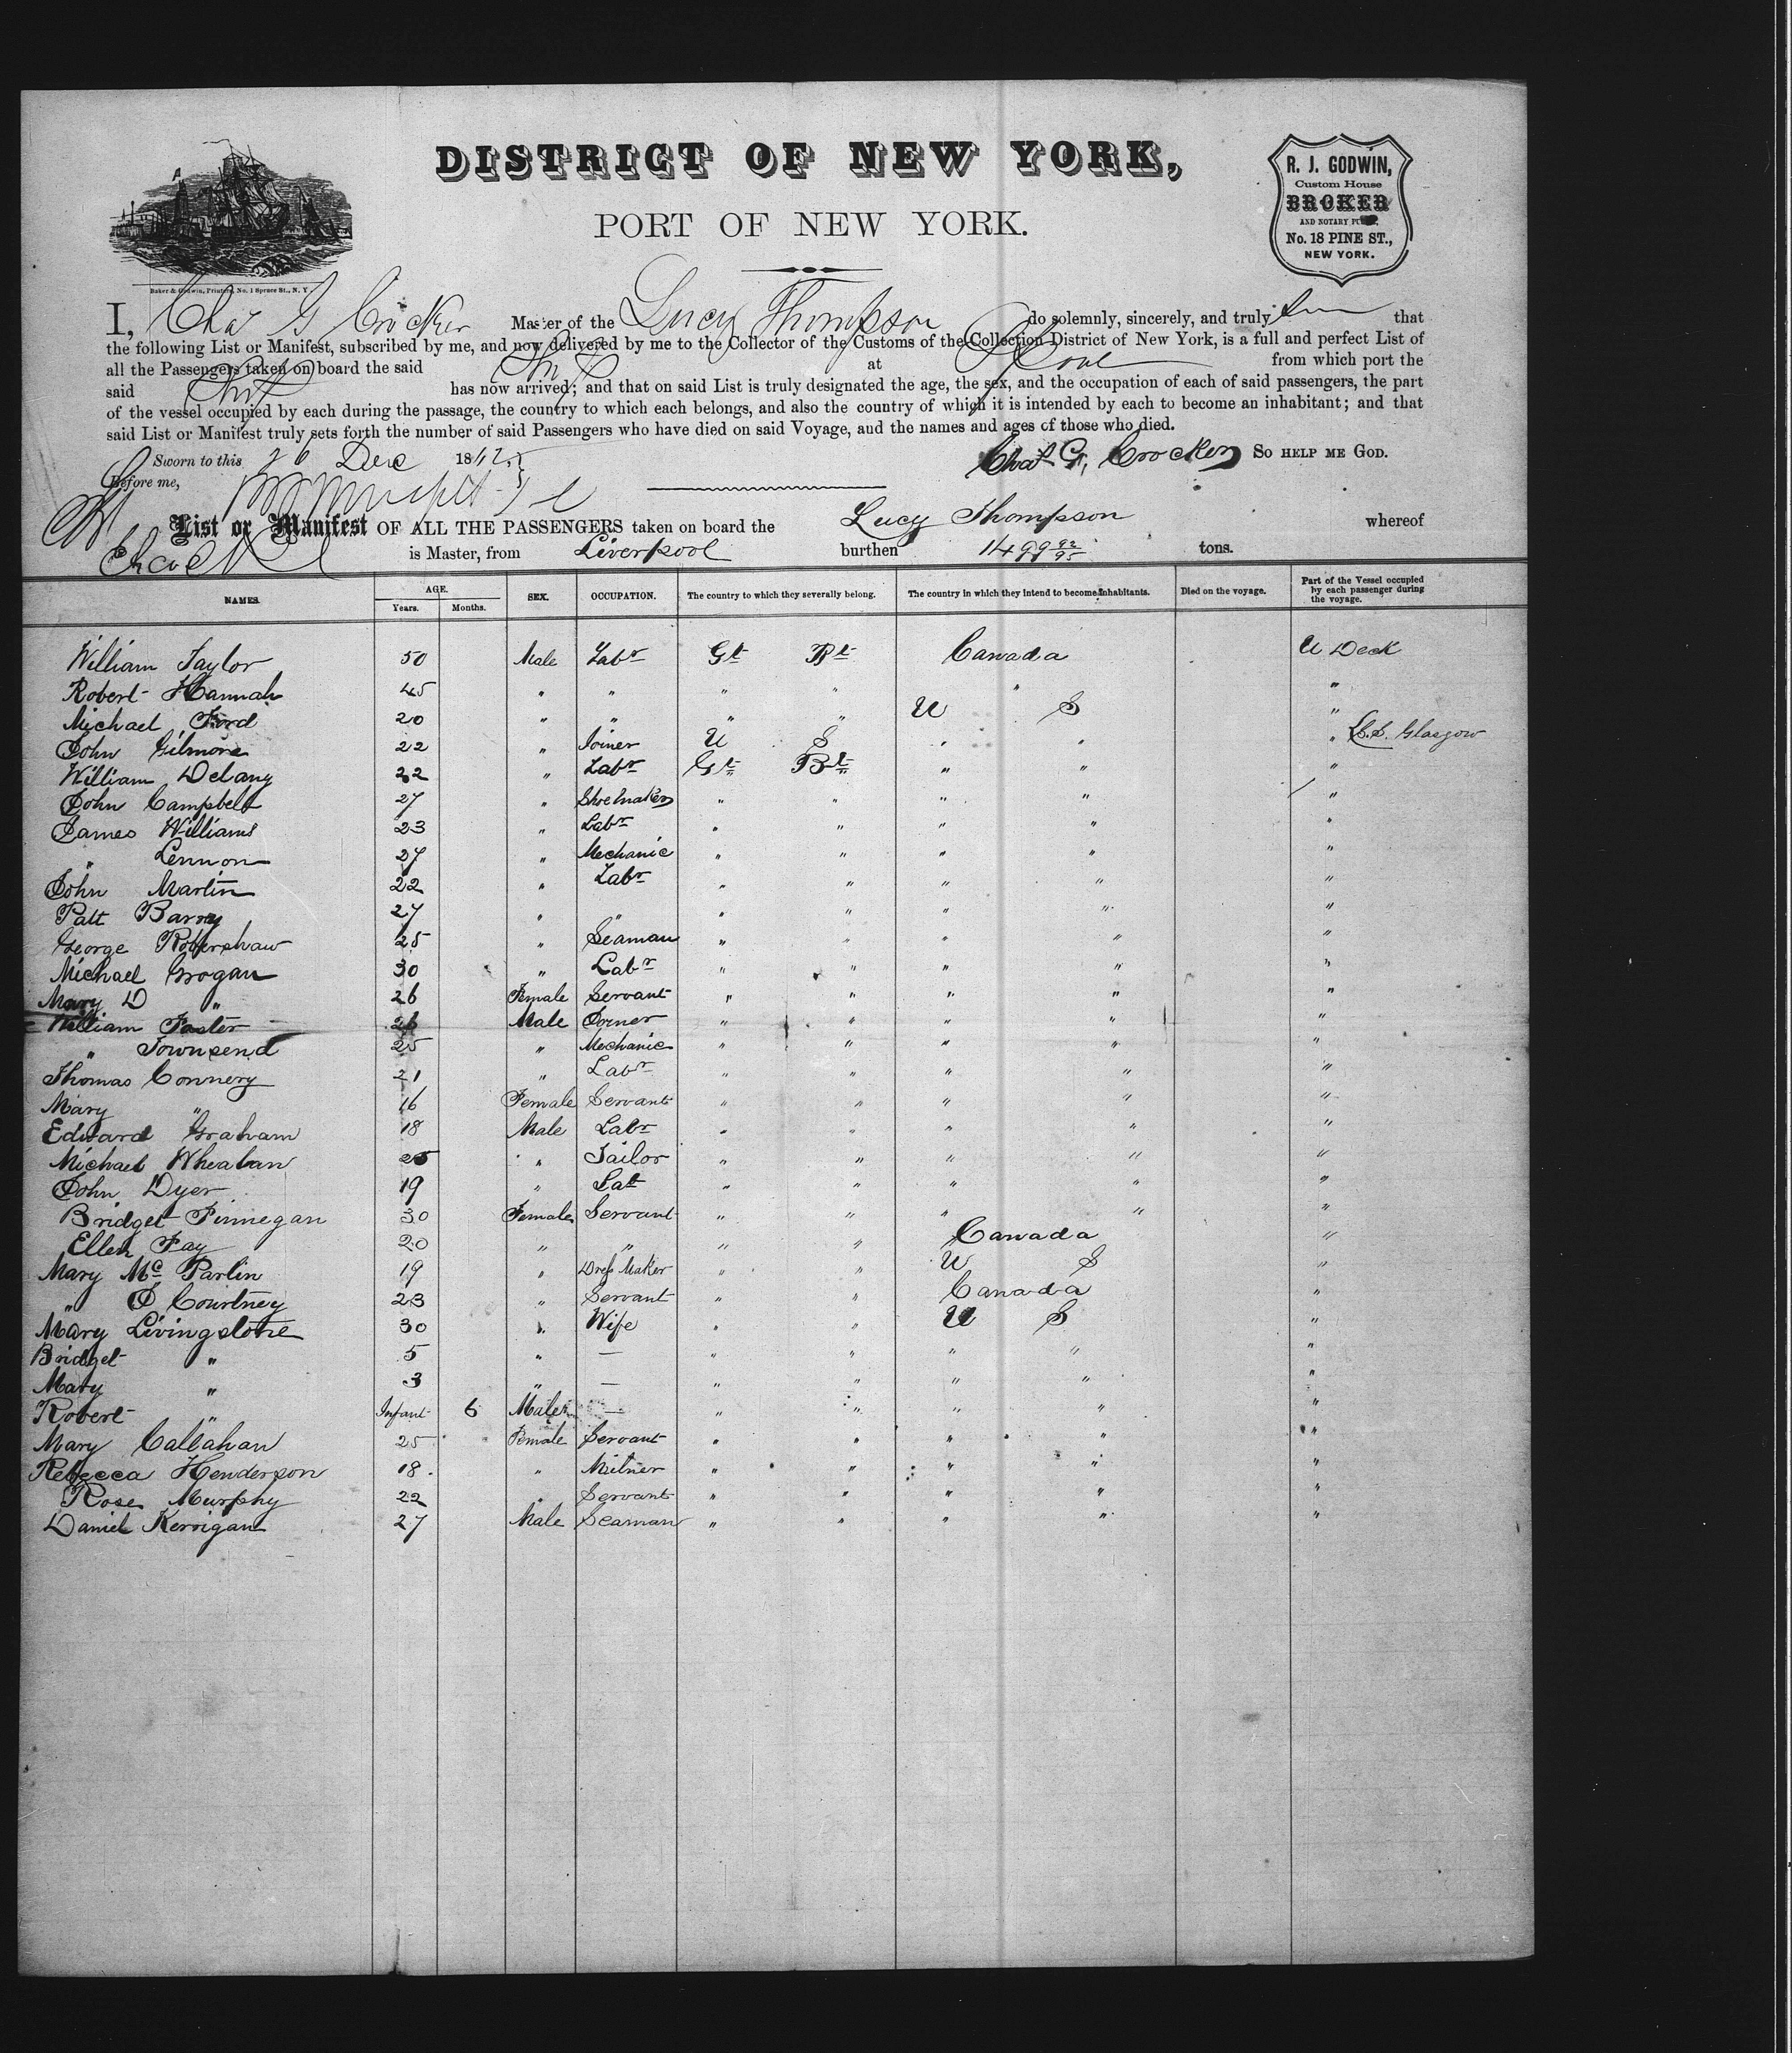 DISTRICT OF NEW YORK,
PORT OF NEW YORK.
R. J. GODWIN,
Custom House
BROKER
AND NOTARY
No. 18 PINE ST.,
NEW YORK.
Baker & Godwin, Printers, No. 1 Spruce St., N. Y.
I, Chas G Crocker Master of the Lucy Thompson do solemnly, sincerely, and truly that
the following List or Manifest, subscribed by me, and now delivered by me to the Collector of the Customs of the Collection District of New York, is a full and perfect List of
all the Passengers taken on board the said Ship at Lpool from which port the
said Ship has now arrived; and that on said List is truly designated the age, the sex, and the occupation of each of said passengers, the part
of the vessel occupied by each during the passage, the country to which each belongs, and also the country of which it is intended by each to become an inhabitant; and that
said List or Manifest truly sets forth the number of said Passengers who have died on said Voyage, and the names and ages of those who died.
Sworn to this 26 Dec 1862. Chas G. Crocker SO HELP ME GOD.
Before me,
List or Manifest OF ALL THE PASSENGERS taken on board the Lucy Thompson whereof
is Master, from Liverpool burthen 1499 92/95 tons.
NAMES. AGE. Years. Months. SEX. OCCUPATION. The country to which they severally belong. The country in which they intend to become inhabitants. Died on the voyage. Part of the Vessel occupied by each passenger during the voyage.
William Taylor 50 Male Labr Gt Bt Canada U Deck
Robert Hannah 45 " " " " " "
Michael Ford 20 " " " " U S "
John Gilmore 22 " Joiner U S " " " S.S. Glasgow
William Delany 22 " Labr Gt Bt " " "
John Campbell 27 " Shoemaker " " " " "
James Williams 23 " Labr " " " " "
" Lennon 27 " Mechanic " " " " "
John Martin 22 " Labr " " " " "
Patt Barry 27 " " " " " " "
George Robershaw 25 " Seaman " " " " "
Michael Grogan 30 " Labr " " " " "
Mary D " 26 Female Servant " " " " "
William Foster 26 Male Joiner " " " " "
" Townsend 25 " Mechanic " " " " "
Thomas Connery 21 " Labr " " " " "
Mary " 16 Female Servant " " " " "
Edward Graham 18 Male Labr " " " " "
Michael Whealan 25 " Tailor " " " " "
John Dyer 19 " Lab " " " " "
Bridget Finnegan 30 Female Servant " " " " "
Ellen Fay 20 " " " " Canada "
Mary Mc Parlin 19 " Dress Maker " " U S "
" Courtney 23 " Servant " " Canada "
Mary Livingstone 30 " Wife " " U S "
Bridget " 5 " — " " " " "
Mary " 3 " — " " " " "
Robert " Infant 6 Male — " " " " "
Mary Callahan 25 Female Servant " " " " "
Rebecca Henderson 18 " Milner " " " " "
Rose Murphy 22 " Servant " " " " "
Daniel Kerrigan 27 Male Seaman " " " " "